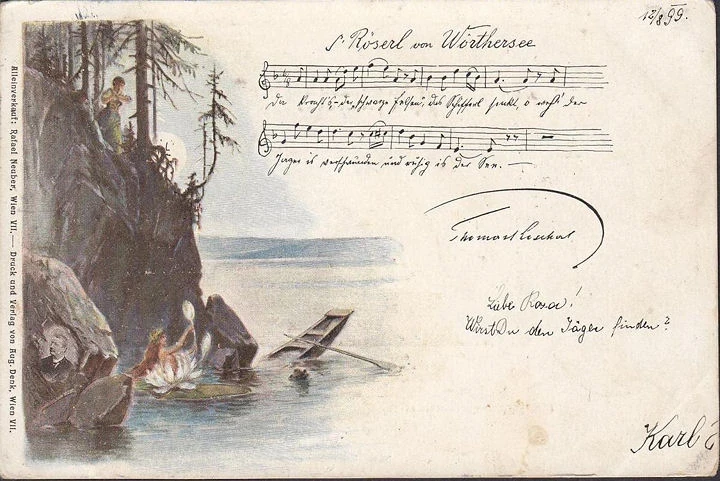 12/8 99.
's Röserl von Wörthersee
Da kracht's der schwarze Felsen, das Schifferl sinkt, o weh! der
Jager is verschwunden und ruhig is der See. —
Thomas Koschat
Liebe Rosa!
Wirst Du den Jäger finden?
Karl
Alleinverkauf: Rafael Neuber, Wien VII. — Druck und Verlag von Aug. Denk, Wien VII.